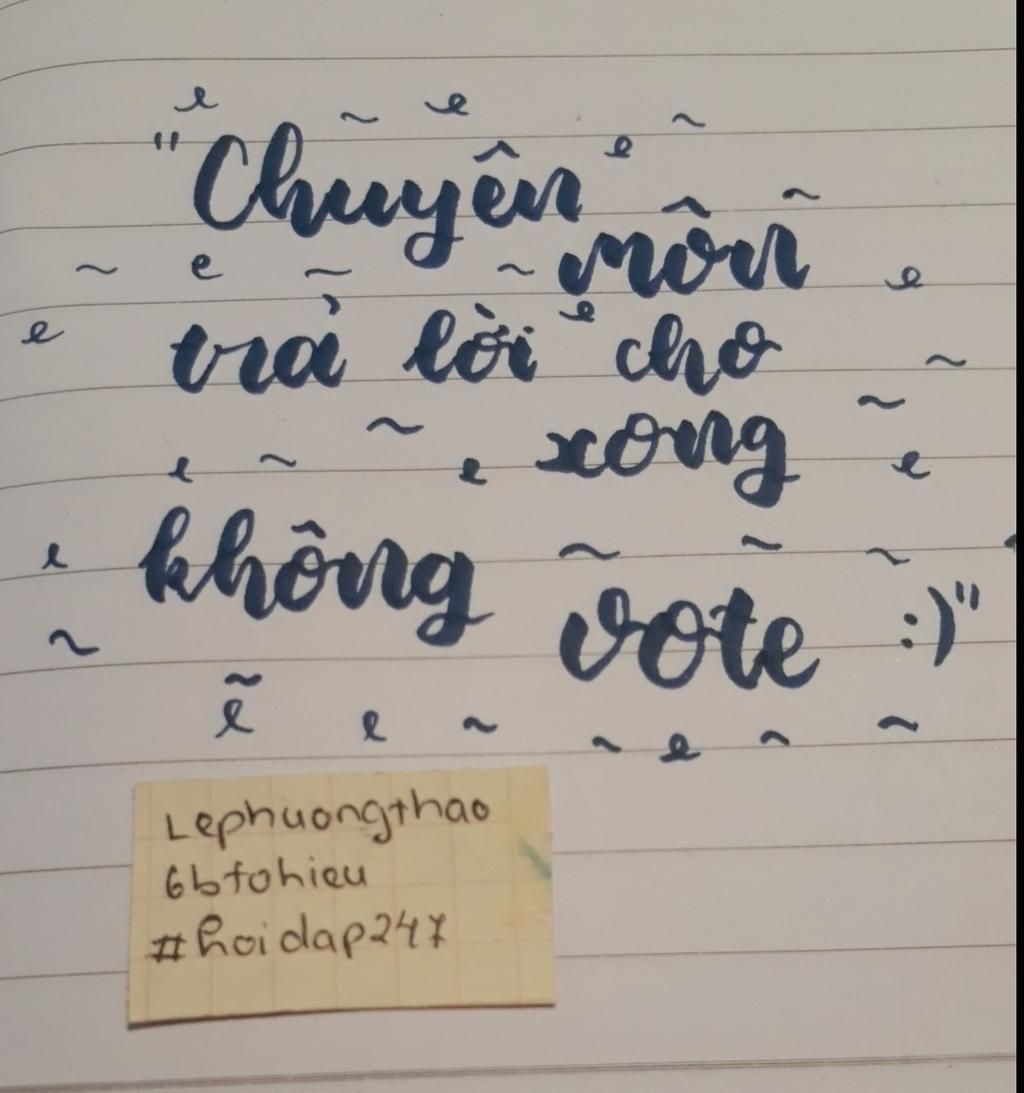 "Chuyên
môn
trả lời cho
xong
không vote :)"
Lephuongthao
6btohieu
#hoidap247